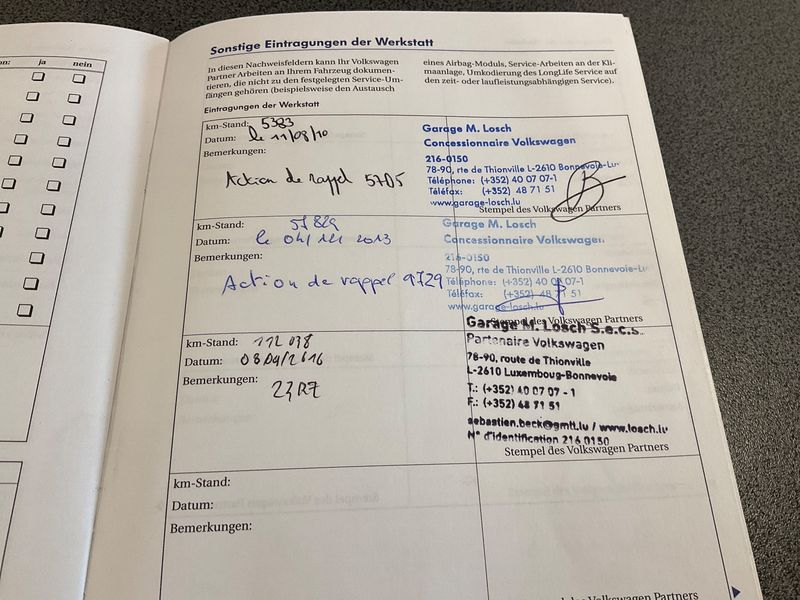 on:
ja
nein
Sonstige Eintragungen der Werkstatt
In diesen Nachweisfeldern kann Ihr Volkswagen
Partner Arbeiten an Ihrem Fahrzeug dokumen-
tieren, die nicht zu den festgelegten Service-Um-
fängen gehören (beispielsweise den Austausch
eines Airbag-Moduls, Service-Arbeiten an der Kli-
maanlage, Umkodierung des LongLife Service auf
den zeit- oder laufleistungsabhängigen Service).
Eintragungen der Werkstatt
km-Stand: 5383
Datum: le 11/08/10
Bemerkungen:
Action de rappel 57D5
Garage M. Losch
Concessionnaire Volkswagen
216-0150
78-90, rte de Thionville L-2610 Bonnevoie-Lu
Téléphone: (+352) 40 07 07-1
Téléfax: (+352) 48 71 51
www.garage-losch.lu
Stempel des Volkswagen Partners
km-Stand: 57829
Datum: le 04/ 2013
Bemerkungen:
Action de rappel 9729
Garage M. Losch
Concessionnaire Volkswagen
216-0150
78-90, rte de Thionville L-2610 Bonnevoie-Lu
Téléphone: (+352) 40 07 07-1
Téléfax: (+352) 48 71 51
www.garage-losch.lu
Stempel des Volkswagen Partners
km-Stand: 112 078
Datum: 08 04/2016
Bemerkungen:
23R7
Garage M. Losch S.e.c.s.
Partenaire Volkswagen
78-90, route de Thionville
L-2610 Luxemboug-Bonnevoie
T.: (+352) 40 07 07 - 1
F.: (+352) 48 71 51
sebastien.beck@gmlt.lu / www.losch.lu
N° d'identification 216 0150
Stempel des Volkswagen Partners
km-Stand:
Datum:
Bemerkungen:
des Volkswagen Partners